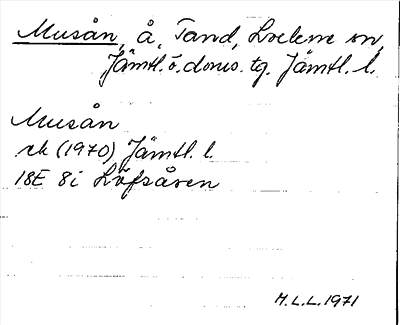 Musån, å, Tand, Lockne sn,
Jämtl. ö. doms. tg. Jämtl. l.
Musån
rk (1970) Jämtl. l.
18E 8i Löfsåsen
M.L.L. 1971